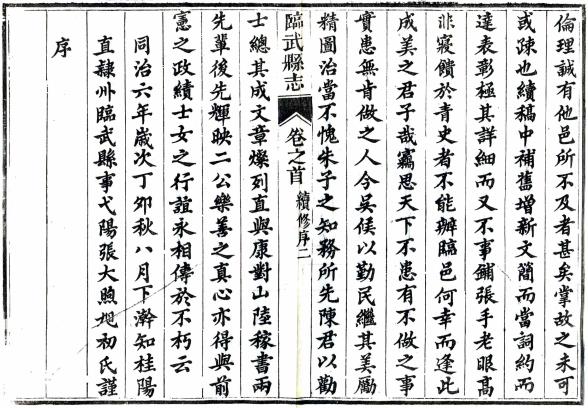 倫理誠有他邑所不及者甚矣掌故之未可
或疎也續稿中補舊增新文簡而當詞約而
達表彰極其詳細而又不事鋪張手老眼高
非寢饋於青史者不能辦臨邑何幸而逢此
成美之君子哉竊思天下不患有不做之事
實患無肯做之人今吳侯以勤民繼其美勵
精圖治當不愧朱子之知務所先陳君以勸
臨武縣志 卷之首 續修序二
士總其成文章燦列直與康對山陸稼書兩
先輩後先輝映二公樂善之真心亦得與前
憲之政績士女之行誼永相傳於不朽云
同治六年歲次丁卯秋八月下澣知桂陽
直隸州臨武縣事弋陽張大煦旭初氏謹
序